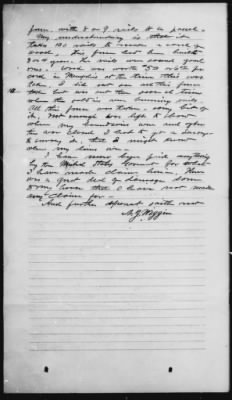 fence, with 8 or 9 rails to a panel.
My understanding is that it
takes 130 rails to make a cord of
wood. This fence had been built
a year, the rails were sound good
ones. Wood was worth $5 or $6 per
cord in Memphis at the time this was
taken. I did not see all this fence
taken but was not there part of time
when the soldiers were burning rails.
All this fence was taken, every thing of
it. Not enough was left to show
where my boundaries was and after
the war closed I had to get a surveyor
to survey it, that I might know
where my lines were.
I have never been paid anything
by the United States Government for what
I have made claim here. There
was a great deal of damage done
to my place that I have not made
any claim for.
And further deponent saith not